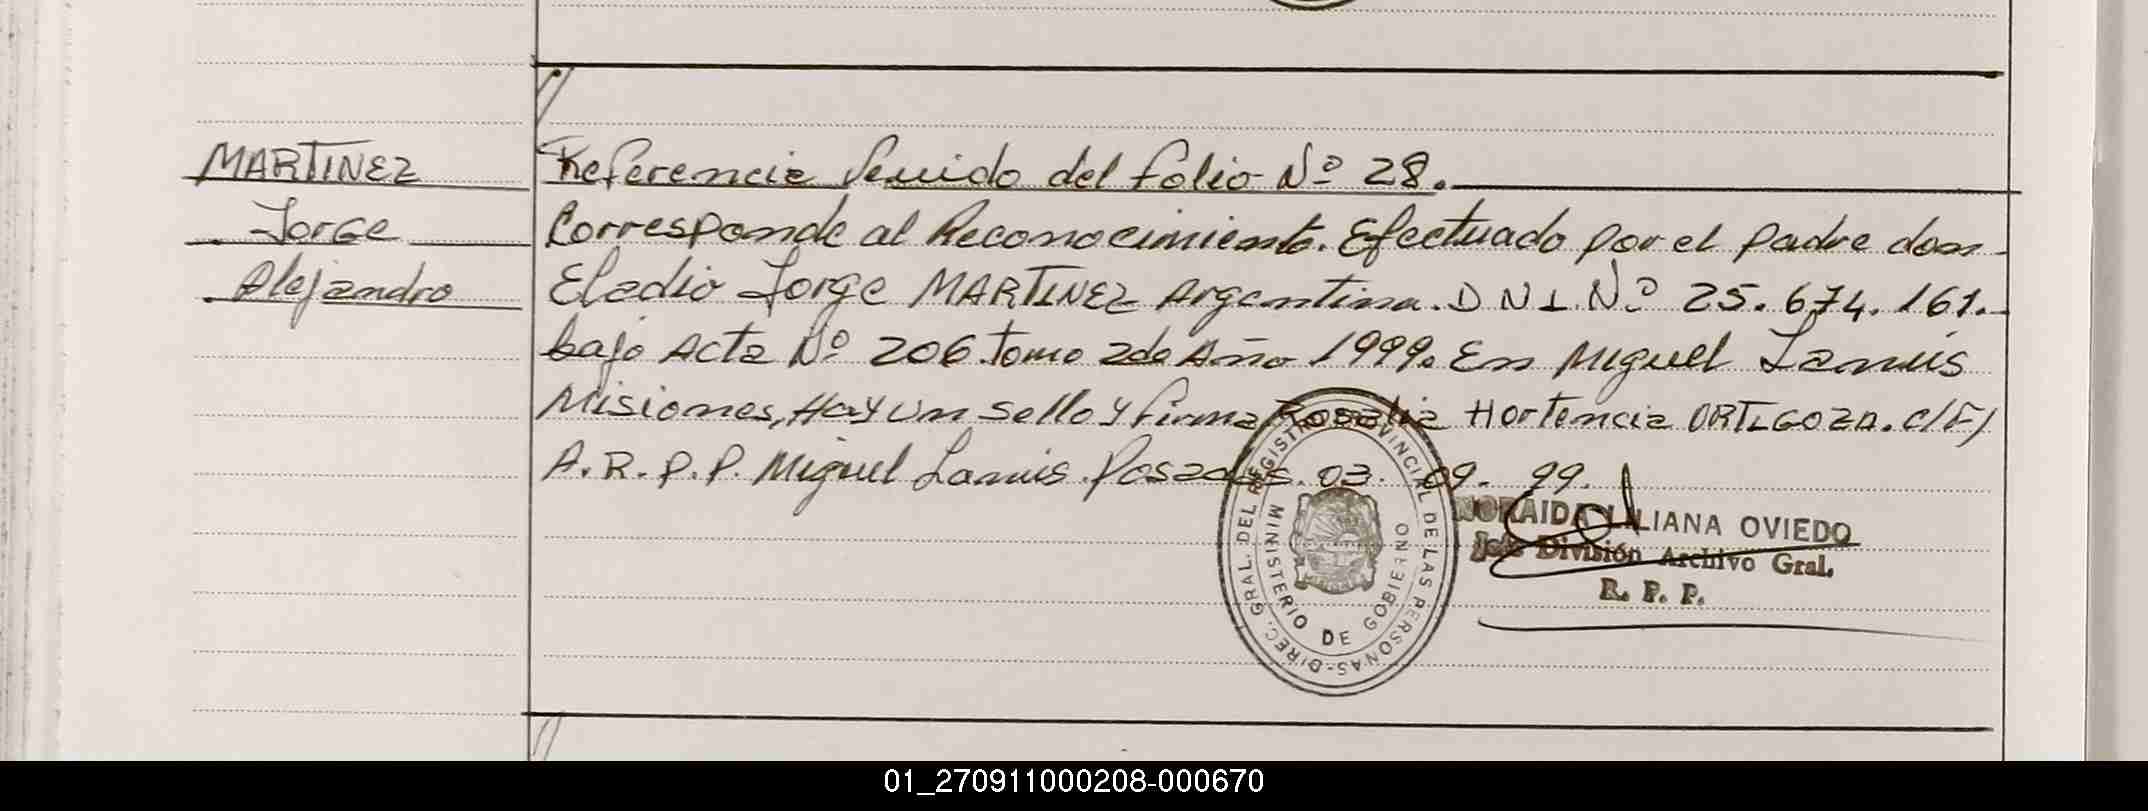 MARTINEZ
Jorge
Alejandro
Referencia Venido del folio Nº 28.
Corresponde al Reconocimiento. Efectuado por el padre don
Eladio Jorge MARTINEZ Argentina. D N I. Nº 25.674.161.
bajo Acta Nº 206 tomo 2do Año 1999. En Miguel Lanús
Misiones, Hay un sello y firma Rosalia Hortencia ORTIGOZA. c/F/
A.R.P.P. Miguel Lanus. Posadas. 03. 09. 99.
DIREC. GRAL. DEL REGISTRO PROVINCIAL DE LAS PERSONAS-
MINISTERIO DE GOBIERNO
NORAIDA LILIANA OVIEDO
Jefe División Archivo Gral.
R. P. P.
01_270911000208-000670